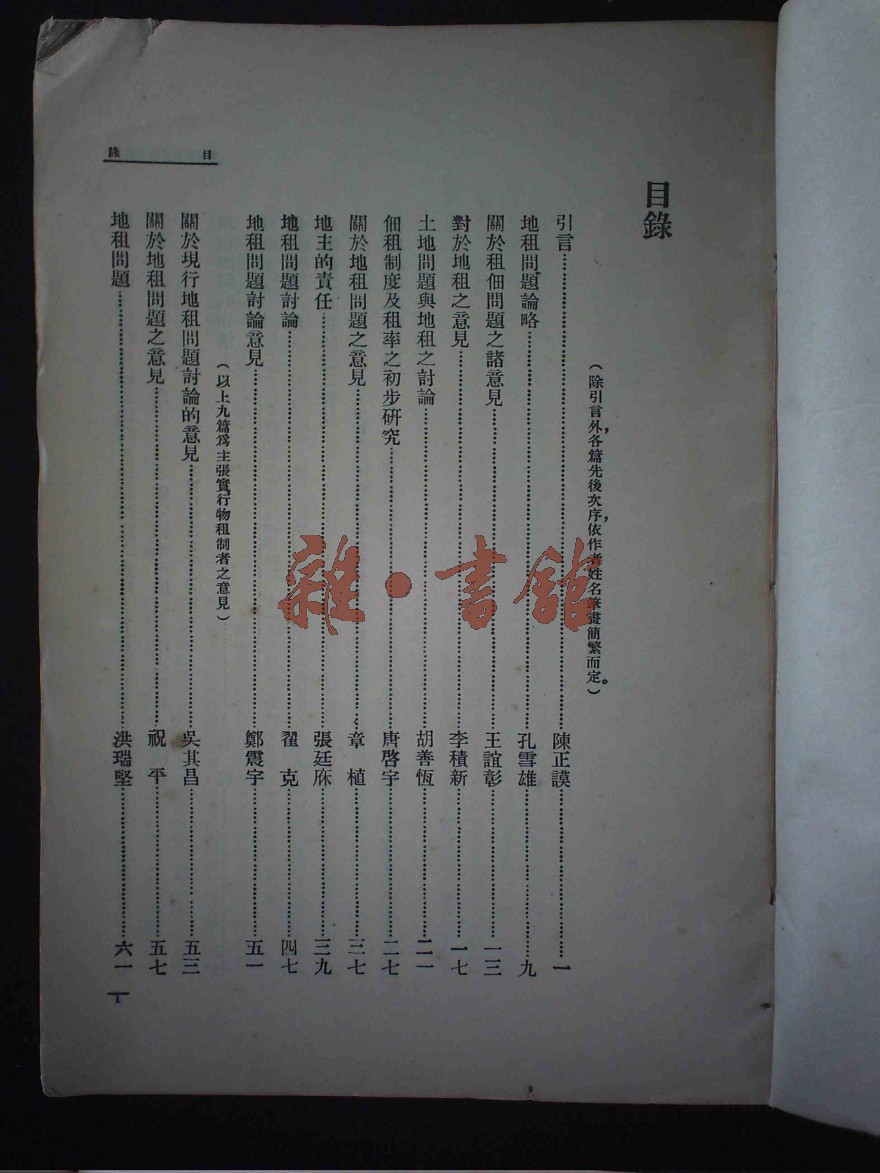 目錄
目錄
（除引言外，各篇先後次序，依作者姓名筆畫簡繁而定。）
引言……陳正謨……一
地租問題論略……孔雪雄……九
關於租佃問題之諸意見……王誼彰……一三
對於地租之意見……李積新……一七
土地問題與地租之討論……胡善恆……二一
佃租制度及租率之初步硏究……唐啓宇……二七
關於地租問題之意見……章植……三七
地主的責任……張廷庥……三九
地租問題討論……翟克……四七
地租問題討論意見……鄭震宇……五一
（以上九篇爲主張實行物租制者之意見）
關於現行地租問題討論的意見……吳其昌……五三
關於地租問題之意見……祝平……五七
地租問題……洪瑞堅……六一
一
雜·書館